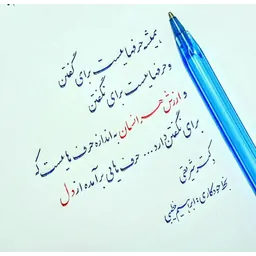 همیشه حرفهایست برای گفتن
و حرفهایست برای نگفتن
و ارزش هر انسان به اندازه حرف هایست که
برای نگفتن دارد... حرف هایی برآمده از دل
دکتر شریعتی
بخط خودکاری: ابراهیم